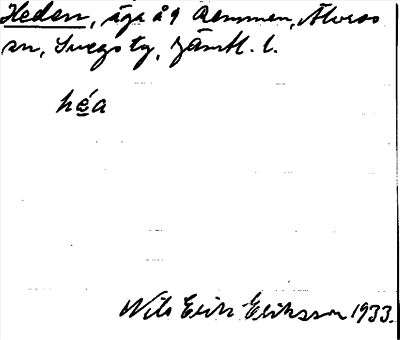 Heden, äga å 9 Remmen, Älvros
sn, Svegs tg, Jämtl. l.
héa
Nils Erik Eriksson 1933.